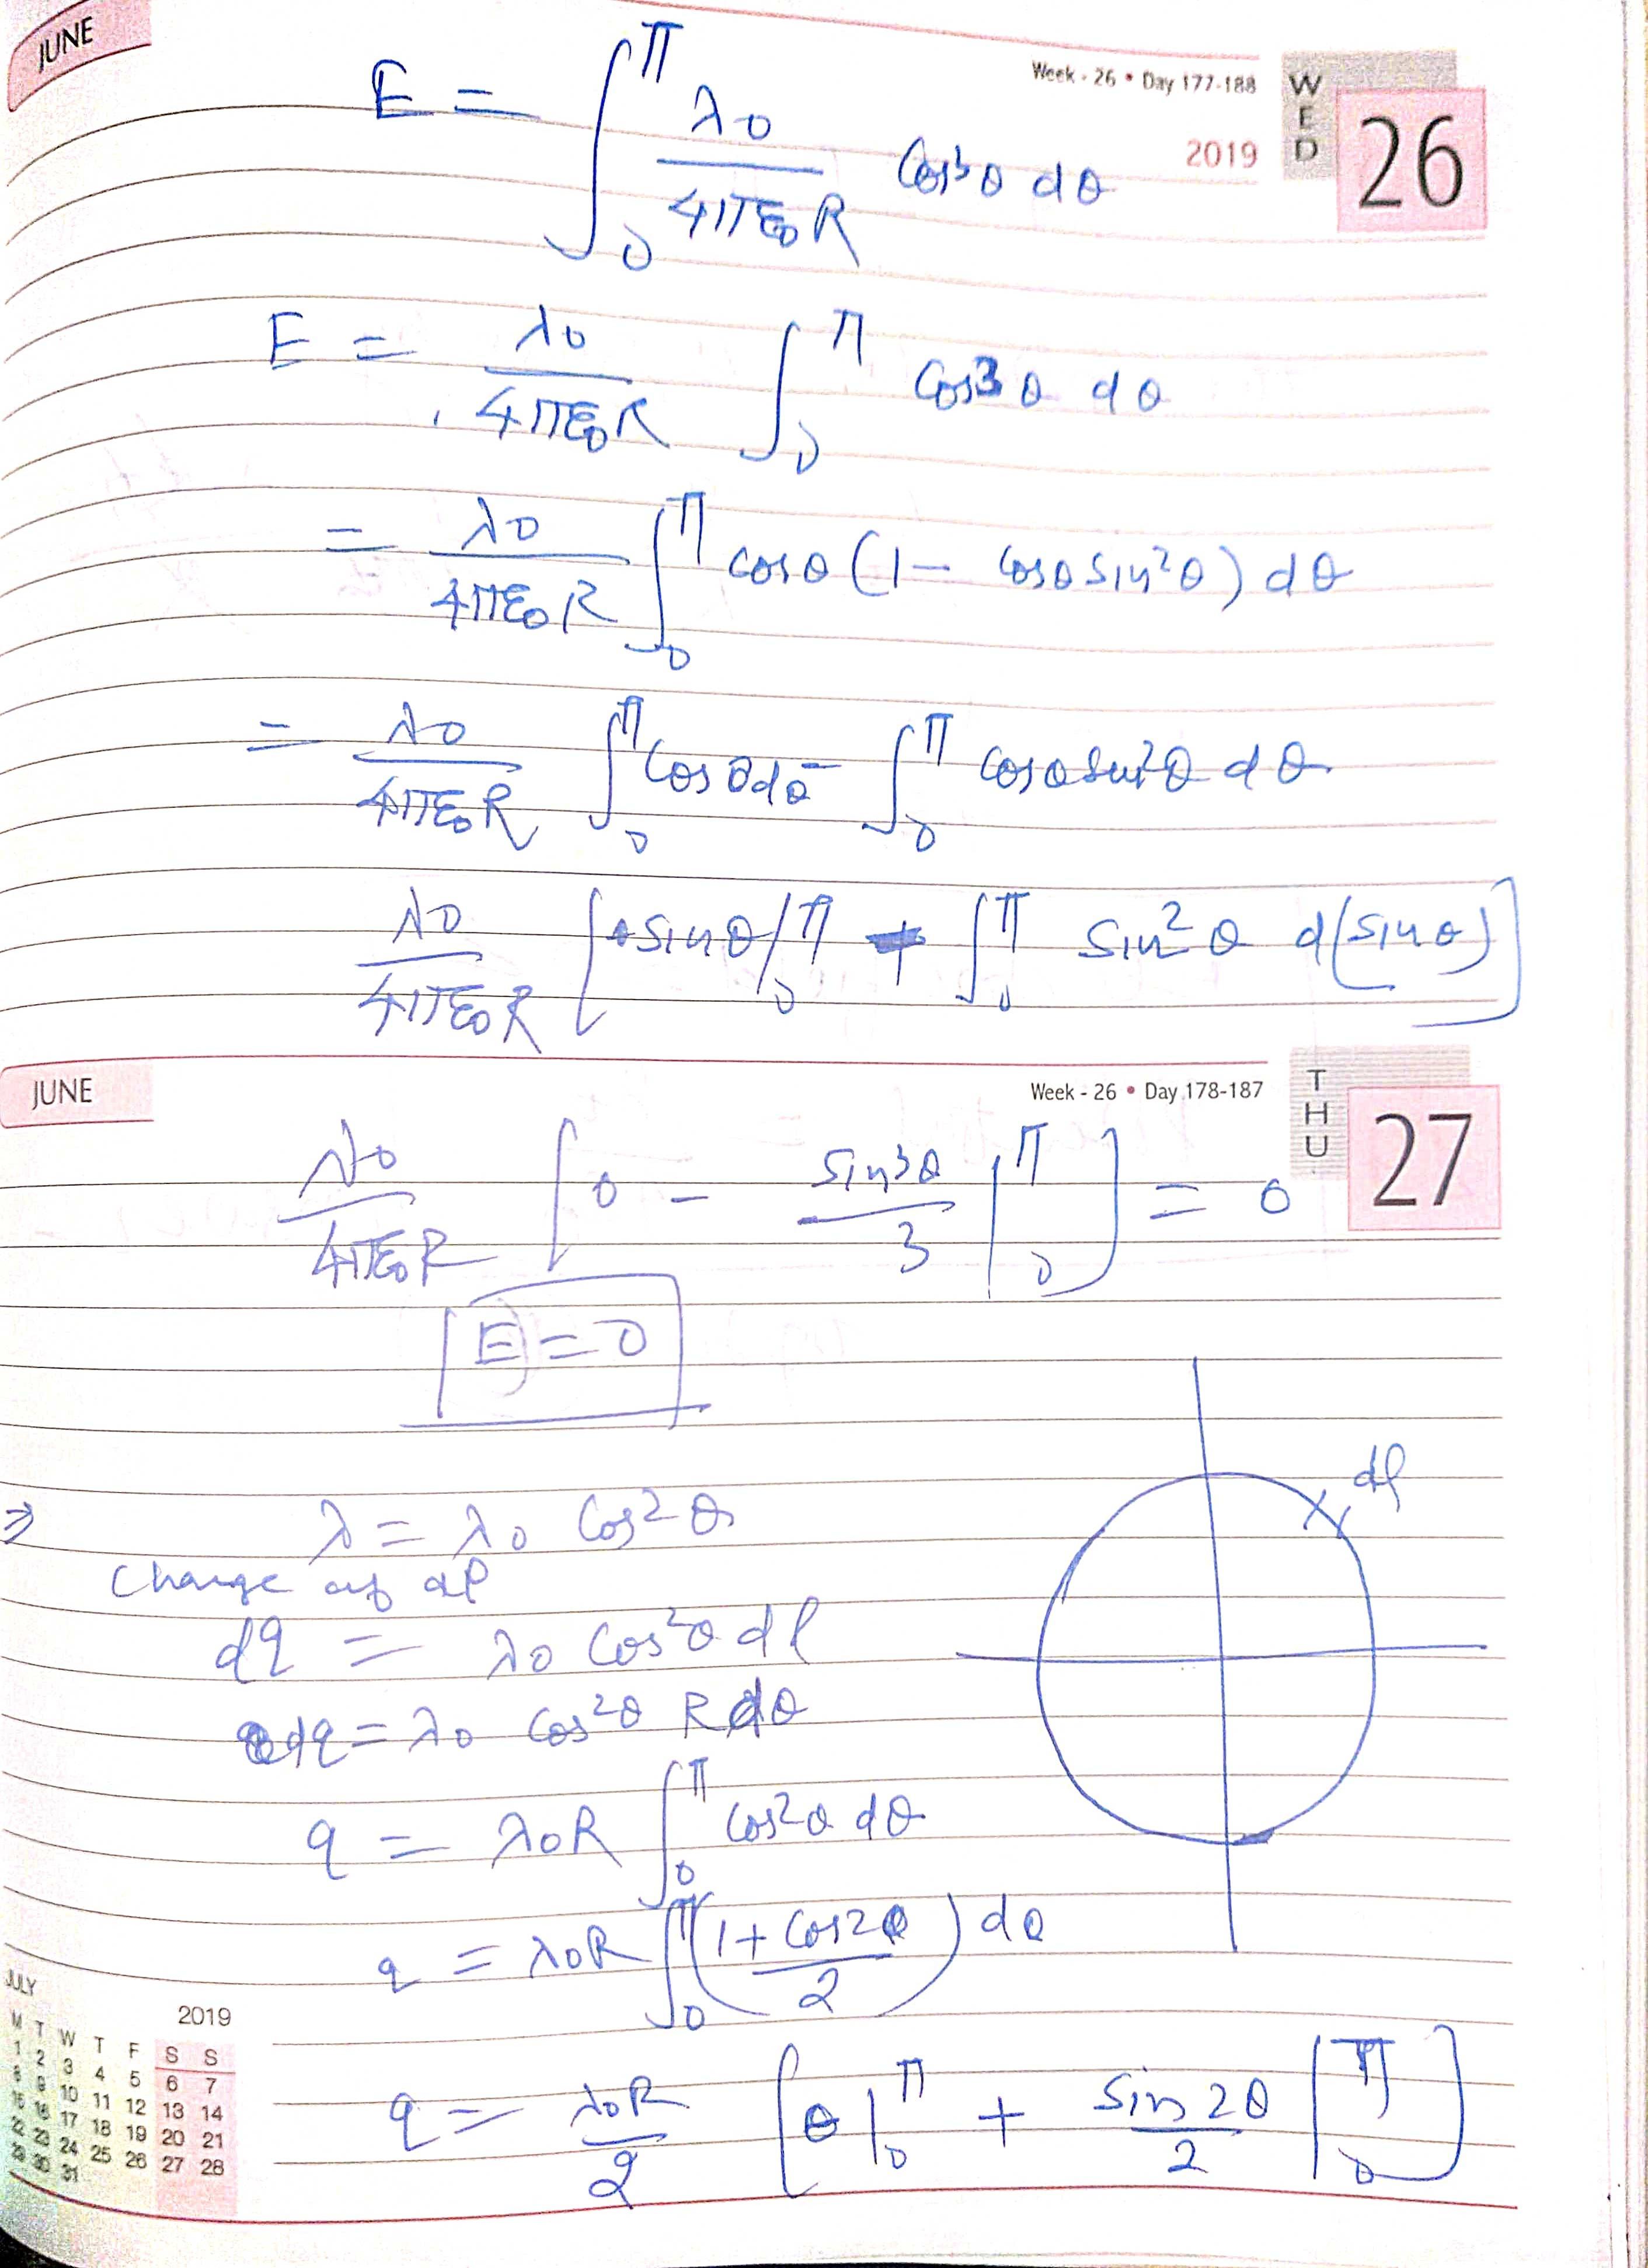 JUNE
Week - 26 • Day 177-188
WED
2019
26
E = ∫₀^π λ₀/4πε₀R cos³θ dθ
E = λ₀/4πε₀R ∫₀^π cos³θ dθ
= λ₀/4πε₀R ∫₀^π cosθ (1 - cosθ sin²θ) dθ
= λ₀/4πε₀R ∫₀^π cosθ dθ - ∫₀^π cosθ sin²θ dθ
λ₀/4πε₀R [sinθ|₀^π - ∫₀^π sin²θ d(sinθ)]
JUNE
Week - 26 • Day 178-187
THU
27
λ₀/4πε₀R [0 - sin³θ/3 |₀^π] = 0
E = 0
dl
⇒ λ = λ₀ cos²θ
Charge of dl
dq = λ₀ cos²θ dl
dq = λ₀ cos²θ R dθ
q = λ₀R ∫₀^π cos²θ dθ
q = λ₀R ∫₀^π (1 + cos2θ / 2) dθ
q = λ₀R/2 [θ|₀^π + sin 2θ/2 |₀^π]
JULY 2019
M T W T F S S
1 2 3 4 5 6 7
8 9 10 11 12 13 14
15 16 17 18 19 20 21
22 23 24 25 26 27 28
29 30 31